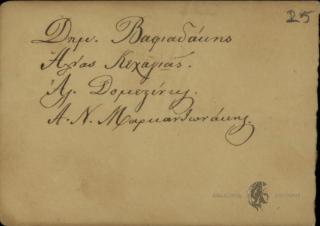 25
Δημ. Βαφιαδάκης
Ηλίας Κεχαγιάς.
Αλ. Δομεζίνης.
Α. Ν. Μαρκαντωνάκης.